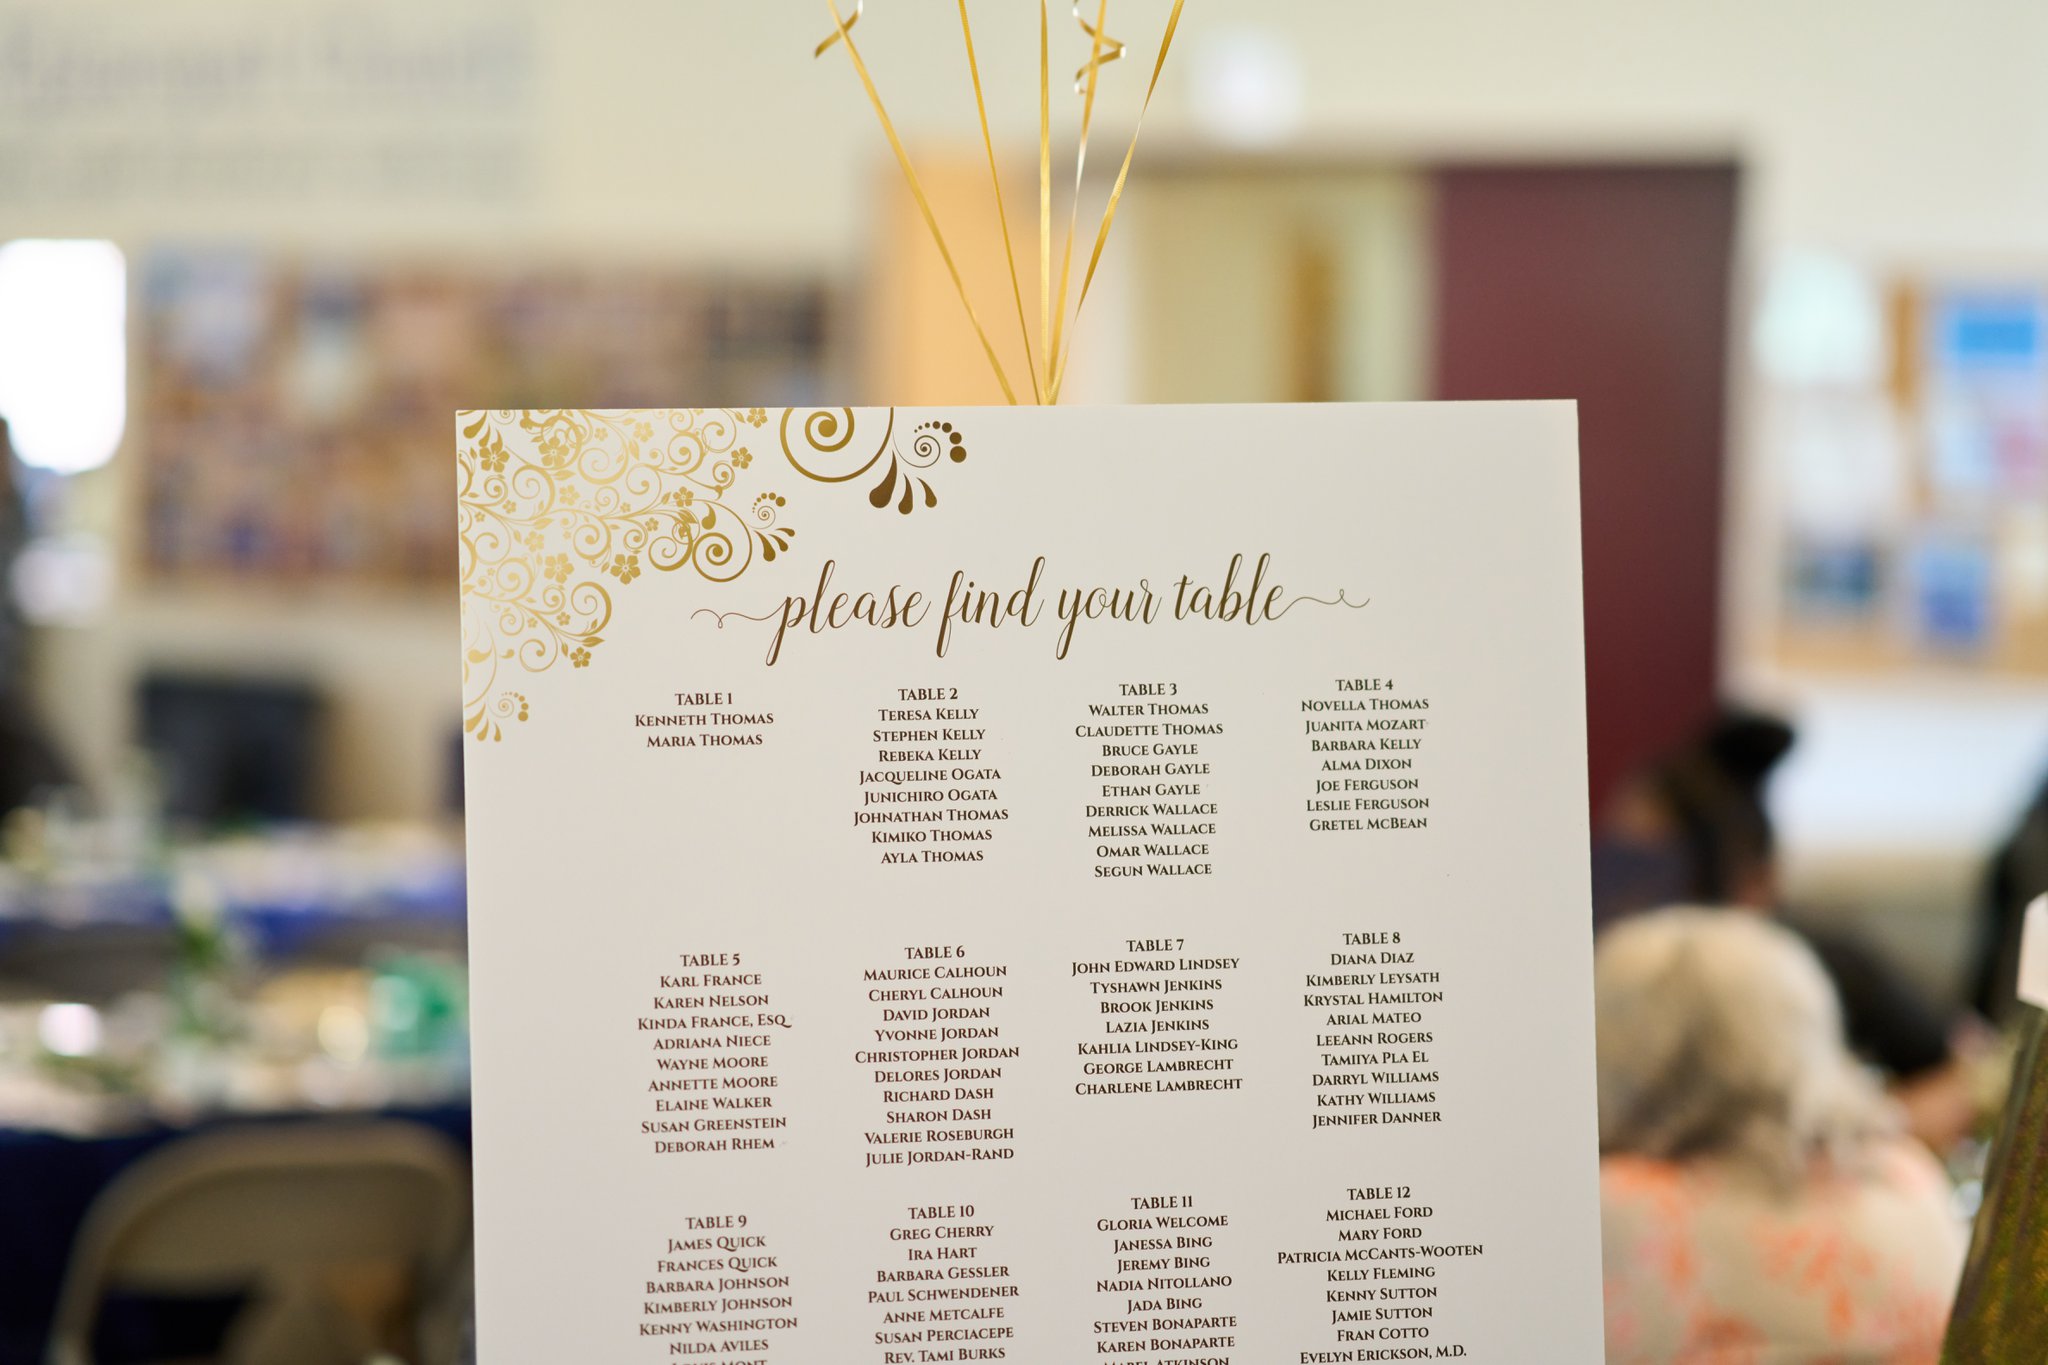 please find your table
TABLE 1
KENNETH THOMAS
MARIA THOMAS
TABLE 2
TERESA KELLY
STEPHEN KELLY
REBEKA KELLY
JACQUELINE OGATA
JUNICHIRO OGATA
JOHNATHAN THOMAS
KIMIKO THOMAS
AYLA THOMAS
TABLE 3
WALTER THOMAS
CLAUDETTE THOMAS
BRUCE GAYLE
DEBORAH GAYLE
ETHAN GAYLE
DERRICK WALLACE
MELISSA WALLACE
OMAR WALLACE
SEGUN WALLACE
TABLE 4
NOVELLA THOMAS
JUANITA MOZART
BARBARA KELLY
ALMA DIXON
JOE FERGUSON
LESLIE FERGUSON
GRETEL MCBEAN
TABLE 5
KARL FRANCE
KAREN NELSON
KINDA FRANCE, ESQ
ADRIANA NIECE
WAYNE MOORE
ANNETTE MOORE
ELAINE WALKER
SUSAN GREENSTEIN
DEBORAH RHEM
TABLE 6
MAURICE CALHOUN
CHERYL CALHOUN
DAVID JORDAN
YVONNE JORDAN
CHRISTOPHER JORDAN
DELORES JORDAN
RICHARD DASH
SHARON DASH
VALERIE ROSEBURGH
JULIE JORDAN-RAND
TABLE 7
JOHN EDWARD LINDSEY
TYSHAWN JENKINS
BROOK JENKINS
LAZIA JENKINS
KAHLIA LINDSEY-KING
GEORGE LAMBRECHT
CHARLENE LAMBRECHT
TABLE 8
DIANA DIAZ
KIMBERLY LEYSATH
KRYSTAL HAMILTON
ARIAL MATEO
LEEANN ROGERS
TAMIIYA PLA EL
DARRYL WILLIAMS
KATHY WILLIAMS
JENNIFER DANNER
TABLE 9
JAMES QUICK
FRANCES QUICK
BARBARA JOHNSON
KIMBERLY JOHNSON
KENNY WASHINGTON
NILDA AVILES
TABLE 10
GREG CHERRY
IRA HART
BARBARA GESSLER
PAUL SCHWENDENER
ANNE METCALFE
SUSAN PERCIACEPE
REV. TAMI BURKS
TABLE 11
GLORIA WELCOME
JANESSA BING
JEREMY BING
NADIA NITOLLANO
JADA BING
STEVEN BONAPARTE
KAREN BONAPARTE
MABEL ATKINSON
TABLE 12
MICHAEL FORD
MARY FORD
PATRICIA MCCANTS-WOOTEN
KELLY FLEMING
KENNY SUTTON
JAMIE SUTTON
FRAN COTTO
EVELYN ERICKSON, M.D.